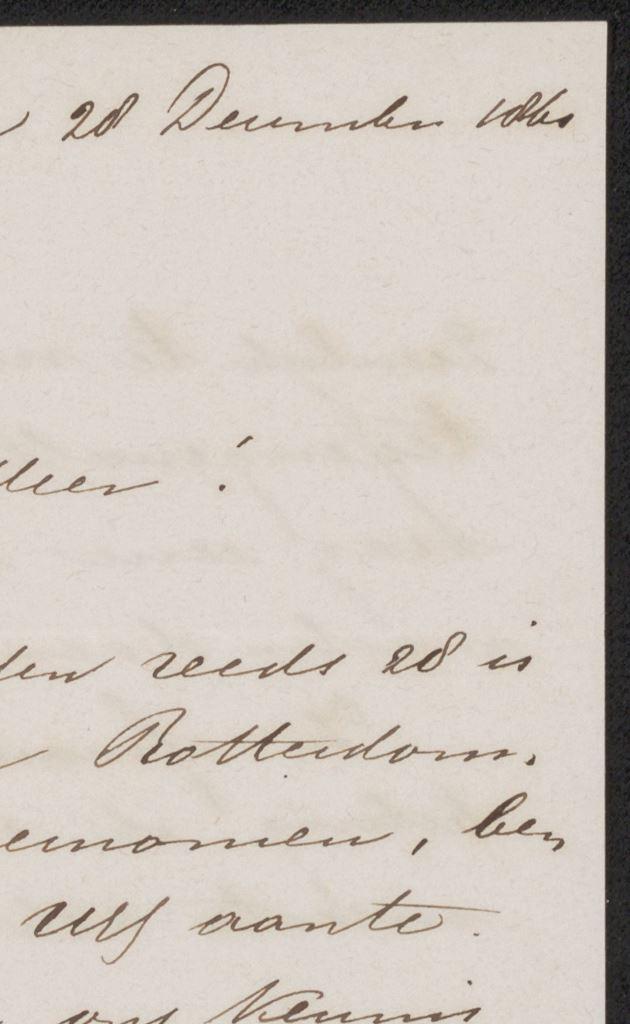 28 December 1860
Heer !
den reeds 28 is
Rotterdam.
genomen, ben
zelf aante
kennis